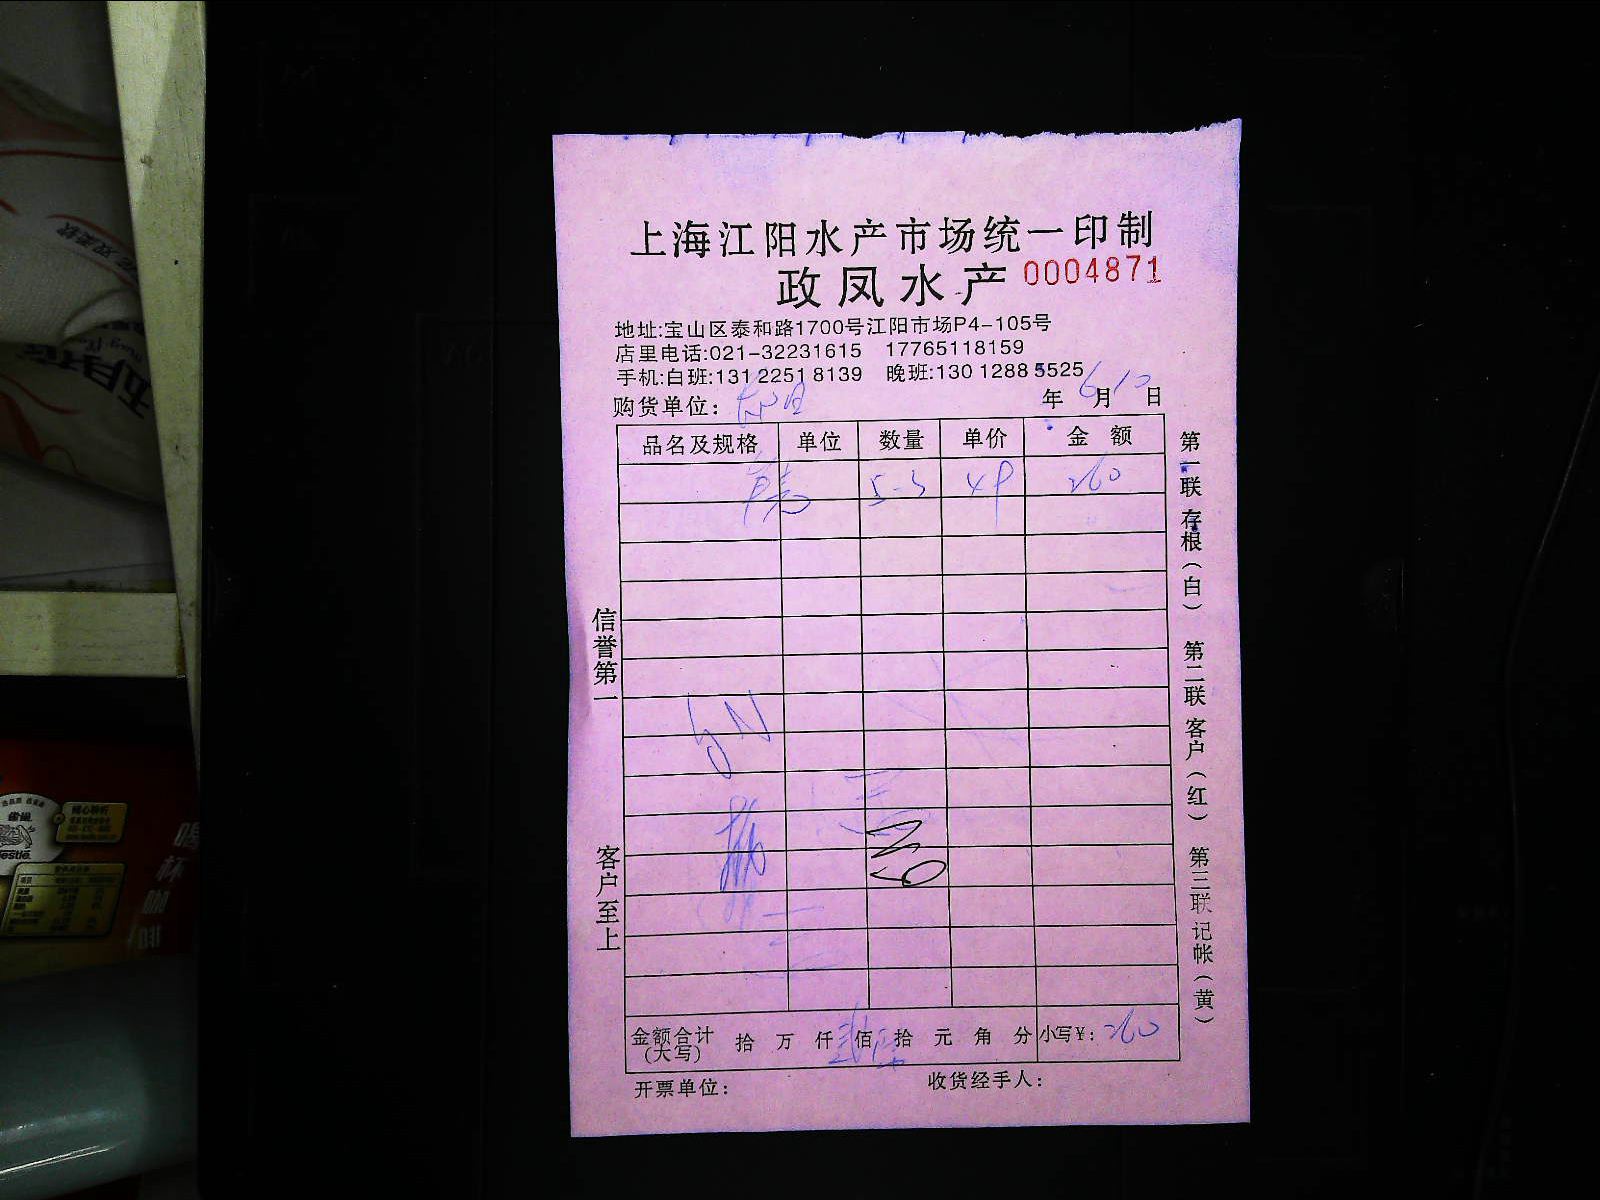 上海江阳水产市场统一印制
政凤水产 0004871
地址:宝山区泰和路1700号江阳市场P4-105号
店里电话:021-32231615 17765118159
手机:白班:131 2251 8139 晚班:130 1288 5525
购货单位: 年 6 月 10 日
品名及规格 单位 数量 单价 金 额
5-3 49 260
金额合计(大写) 拾 万 仟 贰 佰 陆 拾 元 角 分 小写¥: 260
开票单位: 收货经手人:
信誉第一
客户至上
第一联 存根(白) 第二联 客户(红) 第三联 记帐(黄)
五月花
Nestlé